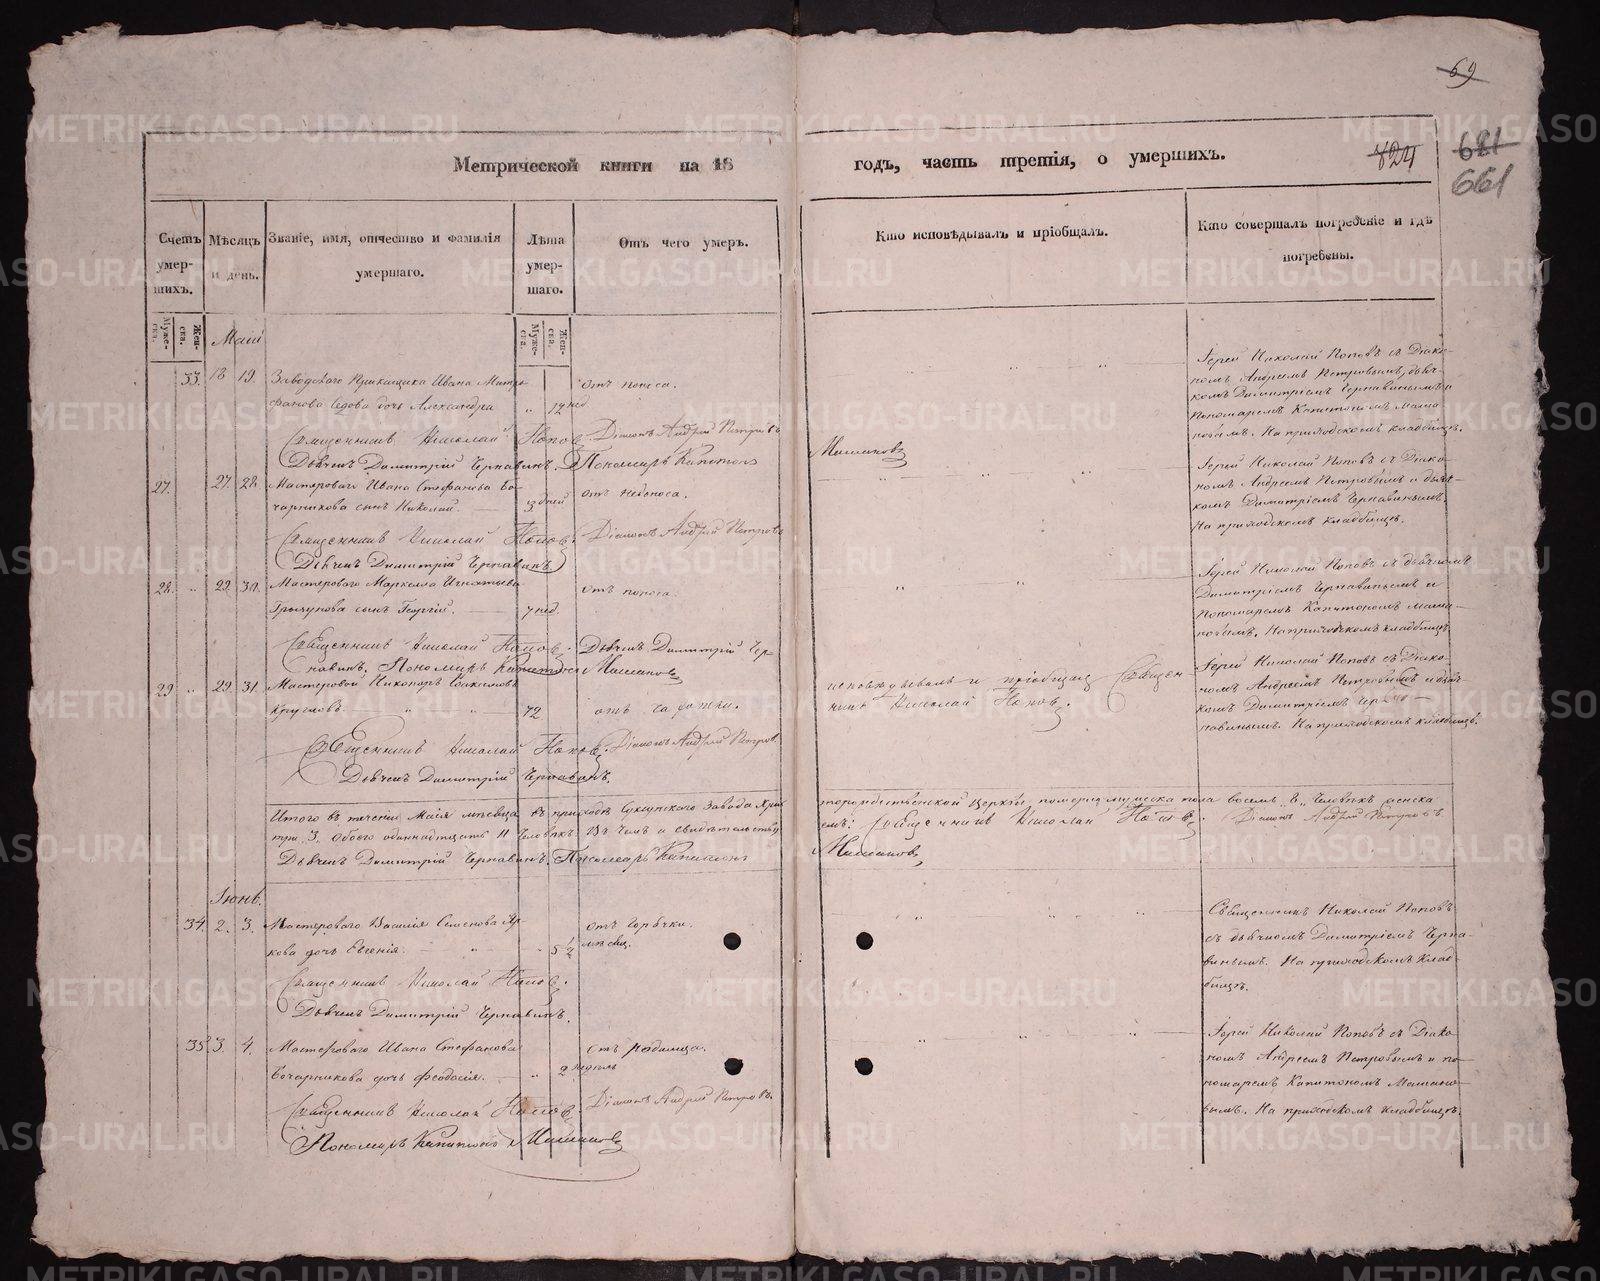 69
Метрической книги на 18 годъ, часть третія, о умершихъ.
824
681
661
Счетъ умер-шихъ.
Мѣсяцъ и день.
Званіе, имя, отчество и фамилія умершаго.
Лѣта умер-шаго.
Отъ чего умеръ.
Кто исповѣдывалъ и пріобщалъ.
Кто совершалъ погребеніе и гдѣ погребены.
Муже-ска.
Жен-ска.
Муже-ска.
Жен-ска.
Маій
33. 18 19. Заводскаго Прикащика Ивана Митро-
фанова Седова дочь Александра " 12 нед.
отъ поноса.
Іерей Николай Поповъ съ Діако-
номъ Андреемъ Петровымъ, дьяч-
комъ Димитріемъ Чернавинымъ и
Пономаремъ Капитономъ Маша-
новымъ. На приходскомъ кладбищѣ.
Священникъ Николай Поповъ. Діаконъ Андрей Петровъ
Дьячекъ Димитрій Чернавинъ. Пономарь Капитонъ Машановъ
27. 27. 28. Мастероваго Ивана Стефанова Бо-
чарникова сынъ Николай. 3 дней
отъ
Іерей Николай Поповъ съ Діако-
номъ Андреемъ Петровымъ и дьяч-
комъ Димитріемъ Чернавинымъ.
На приходскомъ кладбищѣ.
Священникъ Николай Поповъ. Діаконъ Андрей Петровъ
Дьячекъ Димитрій Чернавинъ.
28. " 29. 30. Мастероваго Маркелла Игнатьева
сынъ Георгій. 7 нед.
отъ поноса.
Іерей Николай Поповъ съ дьячкомъ
Димитріемъ Чернавинымъ и
пономаремъ Капитономъ Маша-
новымъ. На приходскомъ кладбищѣ
Священникъ Николай Поповъ. Дьячекъ Димитрій Чер-
навинъ. Пономарь Капитонъ Машановъ
29 " 29. 31. Мастеровой Никаноръ
Кругловъ. " " 72
отъ чахотки.
исповѣдывалъ и пріобщалъ Священ-
никъ Николай Поповъ.
Іерей Николай Поповъ съ Діако-
номъ Андреемъ Петровымъ и дьяч-
комъ Димитріемъ Чер-
навинымъ. На приходскомъ кладбищѣ.
Священникъ Николай Поповъ. Діаконъ Андрей Петровъ
Дьячекъ Димитрій Чернавинъ.
Итого въ теченіи Маія мѣсяца въ приходѣ Суксунского Завода Христорождественской Церкви померло мужеска пола восемь "8" человѣкъ женска
три "3". Обоего одиннадцать 11 человѣкъ. Въ чемъ и свидѣтельствуемъ: Священникъ Николай Поповъ. Діаконъ Андрей Петровъ
Дьячекъ Димитрій Чернавинъ. Пономарь Капитонъ Машановъ
Іюнь.
34. 2. 3. Мастероваго Василія Семенова
дочь Евгенія. " " 5 1/2 мѣсяц.
отъ горячки.
Священникъ Николай Поповъ
съ дьячкомъ Димитріемъ Черна-
винымъ. На приходскомъ клад-
бищѣ.
Священникъ Николай Поповъ.
Дьячекъ Димитрій Чернавинъ.
35. 3. 4. Мастероваго Ивана Стефанова
Бочарникова дочь Феодосія. " 2 недѣль
отъ родимца.
Іерей Николай Поповъ съ Діако-
номъ Андреемъ Петровымъ и по-
номаремъ Капитономъ Машано-
вымъ. На приходскомъ кладбищѣ.
Священникъ Николай Поповъ. Діаконъ Андрей Петровъ.
Пономарь Капитонъ Машановъ
METRIKI.GASO-URAL.RU